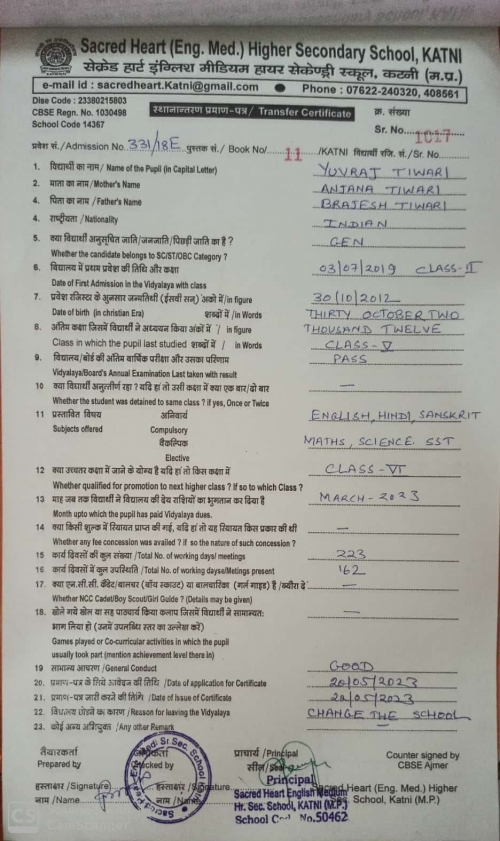 Sacred Heart (Eng. Med.) Higher Secondary School, KATNI
सेक्रेड हार्ट इंग्लिश मीडियम हायर सेकेण्ड्री स्कूल, कटनी (म.प्र.)
e-mail id : sacredheart.Katni@gmail.com ● Phone : 07622-240320, 408561
Dise Code : 23380215803
CBSE Regn. No. 1030498
School Code 14367
स्थानान्तरण प्रमाण-पत्र/ Transfer Certificate
क्र. संख्या
Sr. No. 1017
प्रवेश सं./Admission No. 331/18E पुस्तक सं. / Book No/ 11 /KATNI विद्यार्थी रजि. सं./Sr. No.
1. विद्यार्थी का नाम/ Name of the Pupil (in Capital Letter) YUVRAJ TIWARI
2. माता का नाम/Mother's Name ANJANA TIWARI
4. पिता का नाम/Father's Name BRAJESH TIWARI
4. राष्ट्रीयता/Nationality INDIAN
5. क्या विद्यार्थी अनुसूचित जाति/जनजाति/पिछड़ी जाति का है ? GEN
Whether the candidate belongs to SC/ST/OBC Category ?
6. विद्यालय में प्रथम प्रवेश की तिथि और कक्षा 03/07/2019 CLASS-II
Date of First Admission in the Vidyalaya with class
7. प्रवेश रजिस्टर के अनुसार जन्मतिथी (ईसवी सन्) अंको में/in figure 30/10/2012
Date of birth (in christian Era) शब्दों में/in Words THIRTY OCTOBER TWO
8. अंतिम कक्षा जिसमें विद्यार्थी ने अध्ययन किया अंकों में / in figure THOUSAND TWELVE
Class in which the pupil last studied शब्दों में / in Words CLASS-V
9. विद्यालय/बोर्ड की अंतिम वार्षिक परीक्षा और उसका परिणाम PASS
Vidyalaya/Board's Annual Examination Last taken with result
10 क्या विद्यार्थी अनुत्तीर्ण रहा ? यदि हां तो उसी कक्षा में क्या एक बार/दो बार —
Whether the student was detained to same class ? if yes, Once or Twice
11 प्रस्तावित विषय अनिवार्य ENGLISH, HINDI, SANSKRIT
Subjects offered Compulsory
वैकल्पिक MATHS, SCIENCE. SST
Elective
12 क्या उच्चतर कक्षा में जाने के योग्य है यदि हां तो किस कक्षा में CLASS-VI
Whether qualified for promotion to next higher class ? if so to which Class ?
13 माह जब तक विद्यार्थी ने विद्यालय की देय राशियों का भुगतान कर दिया है MARCH-2023
Month upto which the pupil has paid Vidyalaya dues.
14 क्या किसी शुल्क में रियायत प्राप्त की गई, यदि हां तो यह रियायत किस प्रकार की थी —
Whether any fee concession was availed ? if so the nature of such concession ?
15 कार्य दिवसों की कुल संख्या /Total No. of working days/ meetings 223
16 कार्य दिवसों में कुल उपस्थिति /Total No. of working dayse/Metings present 162
17 क्या एन.सी.सी. कैडेट/बालचर (बॉय स्काउट) या बालचारिका (गर्ल गाइड) है /ब्यौरा दे —
Whether NCC Cadet/Boy Scout/Girl Guide ? (Details may be given)
18. खेले गये खेल या सह पाठ्यचर्य किया कलाप जिसमें विद्यार्थी ने सामान्यत: —
भाग लिया हो (उनमें उपलब्धि स्तर का उल्लेख करें)
Games played or Co-curricular activities in which the pupil
usually took part (mention achievement level there in)
19 सामान्य आचरण /General Conduct GOOD
20. प्रमाण-पत्र के लिये आवेदन की तिथि /Date of application for Certificate 20/05/2023
21. प्रमाण-पत्र जारी करने की तिथि /Date of issue of Certificate 20/05/2023
22. विद्यालय छोड़ने का कारण /Reason for leaving the Vidyalaya CHANGE THE SCHOOL
23. कोई अन्य अभियुक्त /Any other Remark
तैयारकर्ता प्राचार्य /Principal Counter signed by
Prepared by Checked by सील/Seal CBSE Ajmer
हस्ताक्षर /Signature हस्ताक्षर /Signature Principal Sacred Heart (Eng. Med.) Higher
नाम /Name नाम /Name Sacred Heart English Medium Sec. School, Katni (M.P.)
Hr. Sec. School, KATNI (M.P.)
School Cod No.50462
CS